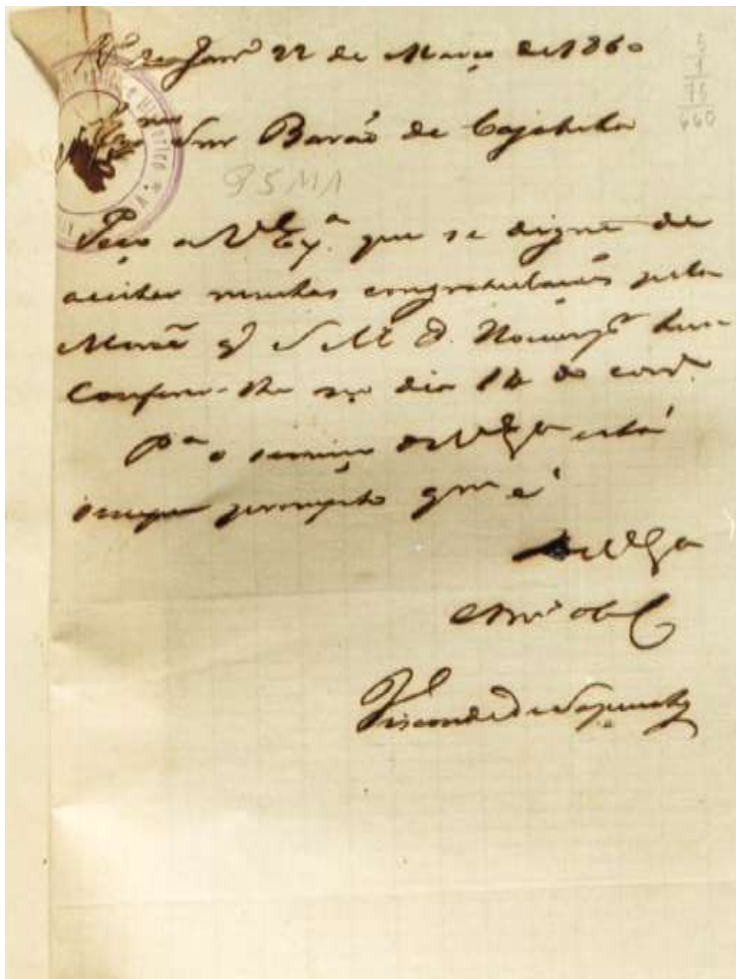 Rio de Janrº 22 de Março de 1860
5
1
75
660
Exmº Snr Barão de Cajahiba
Peço a V Exª. que se digne de
aceitar minhas congratulações pela
Mercê q' S M O
Conferir-lhe no dia 14 do corrº.
Pª o serviço de V Exª está
sempre prompto qm é
De V Exª
Amº
Visconde de Sapucahy